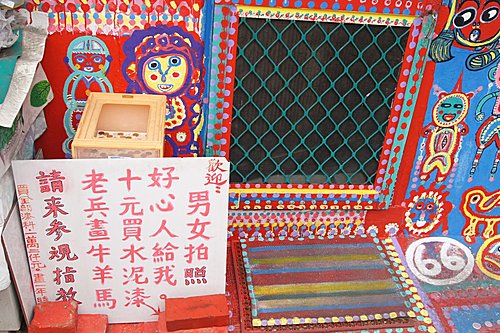 歡迎男女拍照
好心人給我。
十元買水泥漆。
老兵畫牛羊馬
請來參觀指教
66